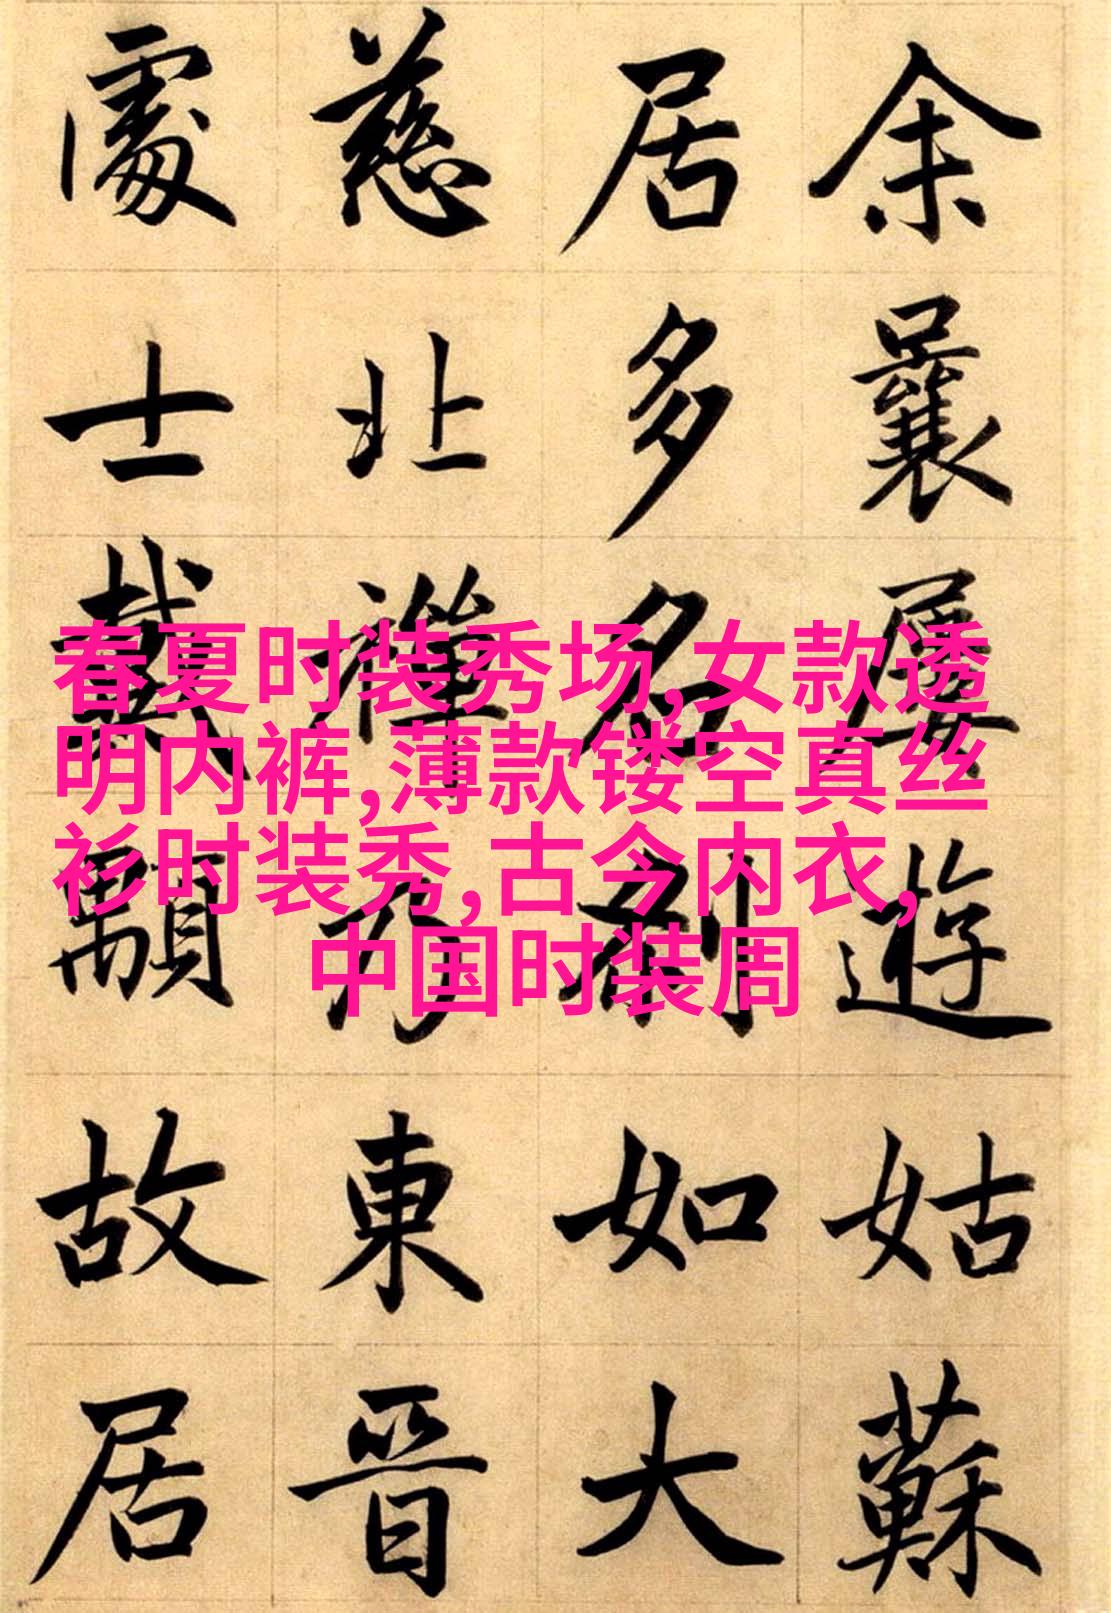 余曩屢遊姑蘇
居多名刹如大
慈北禪乃東晉
處士戴顒故居
春夏时装秀场,女款透
明内裤,薄款镂空真丝
衫时装秀,古今内衣,
中国时装周